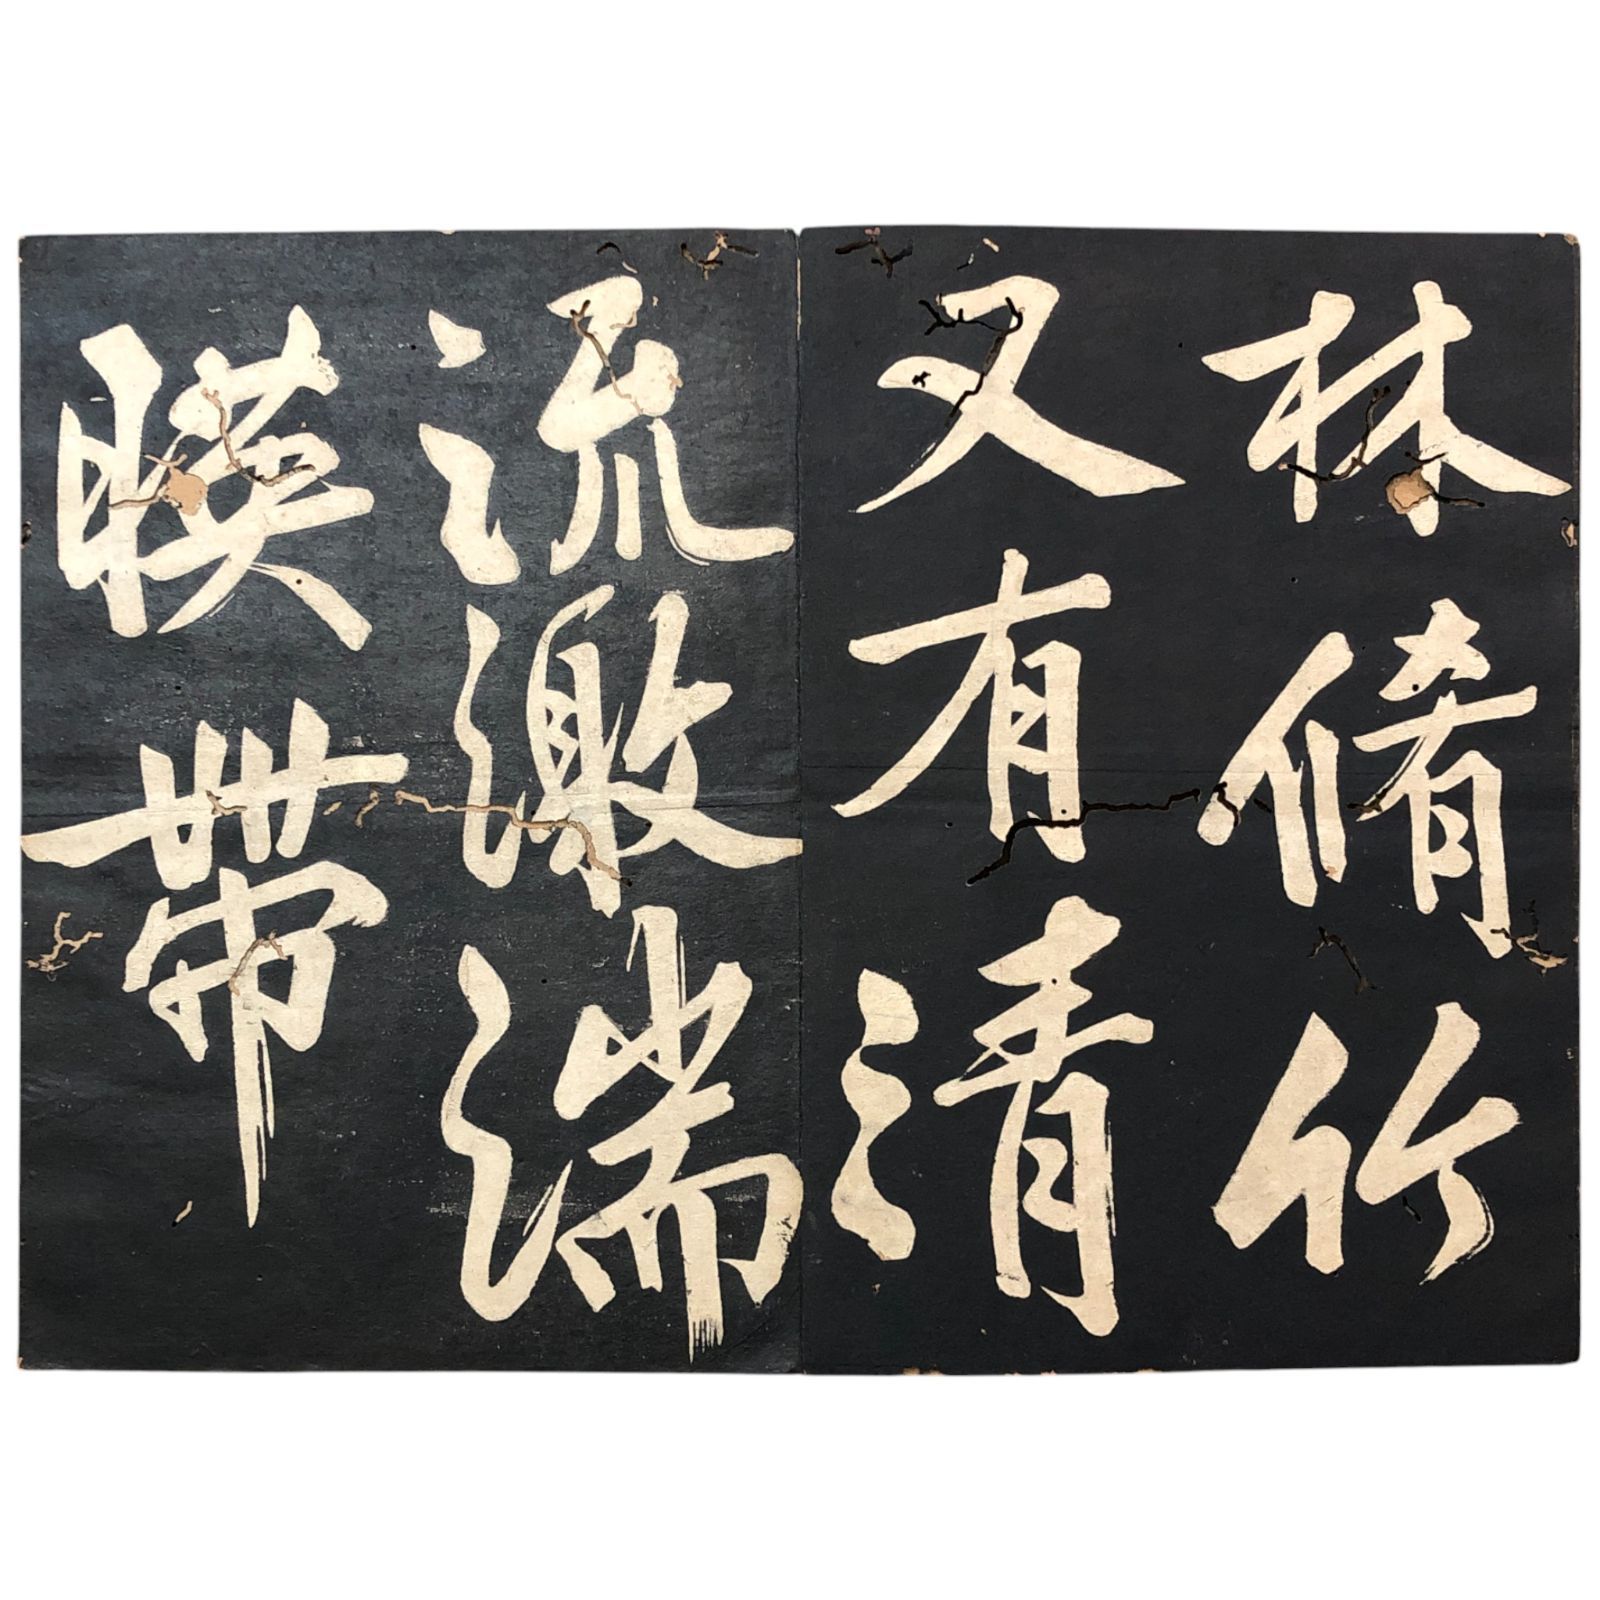 林脩竹
又有清
流激湍
暎帶